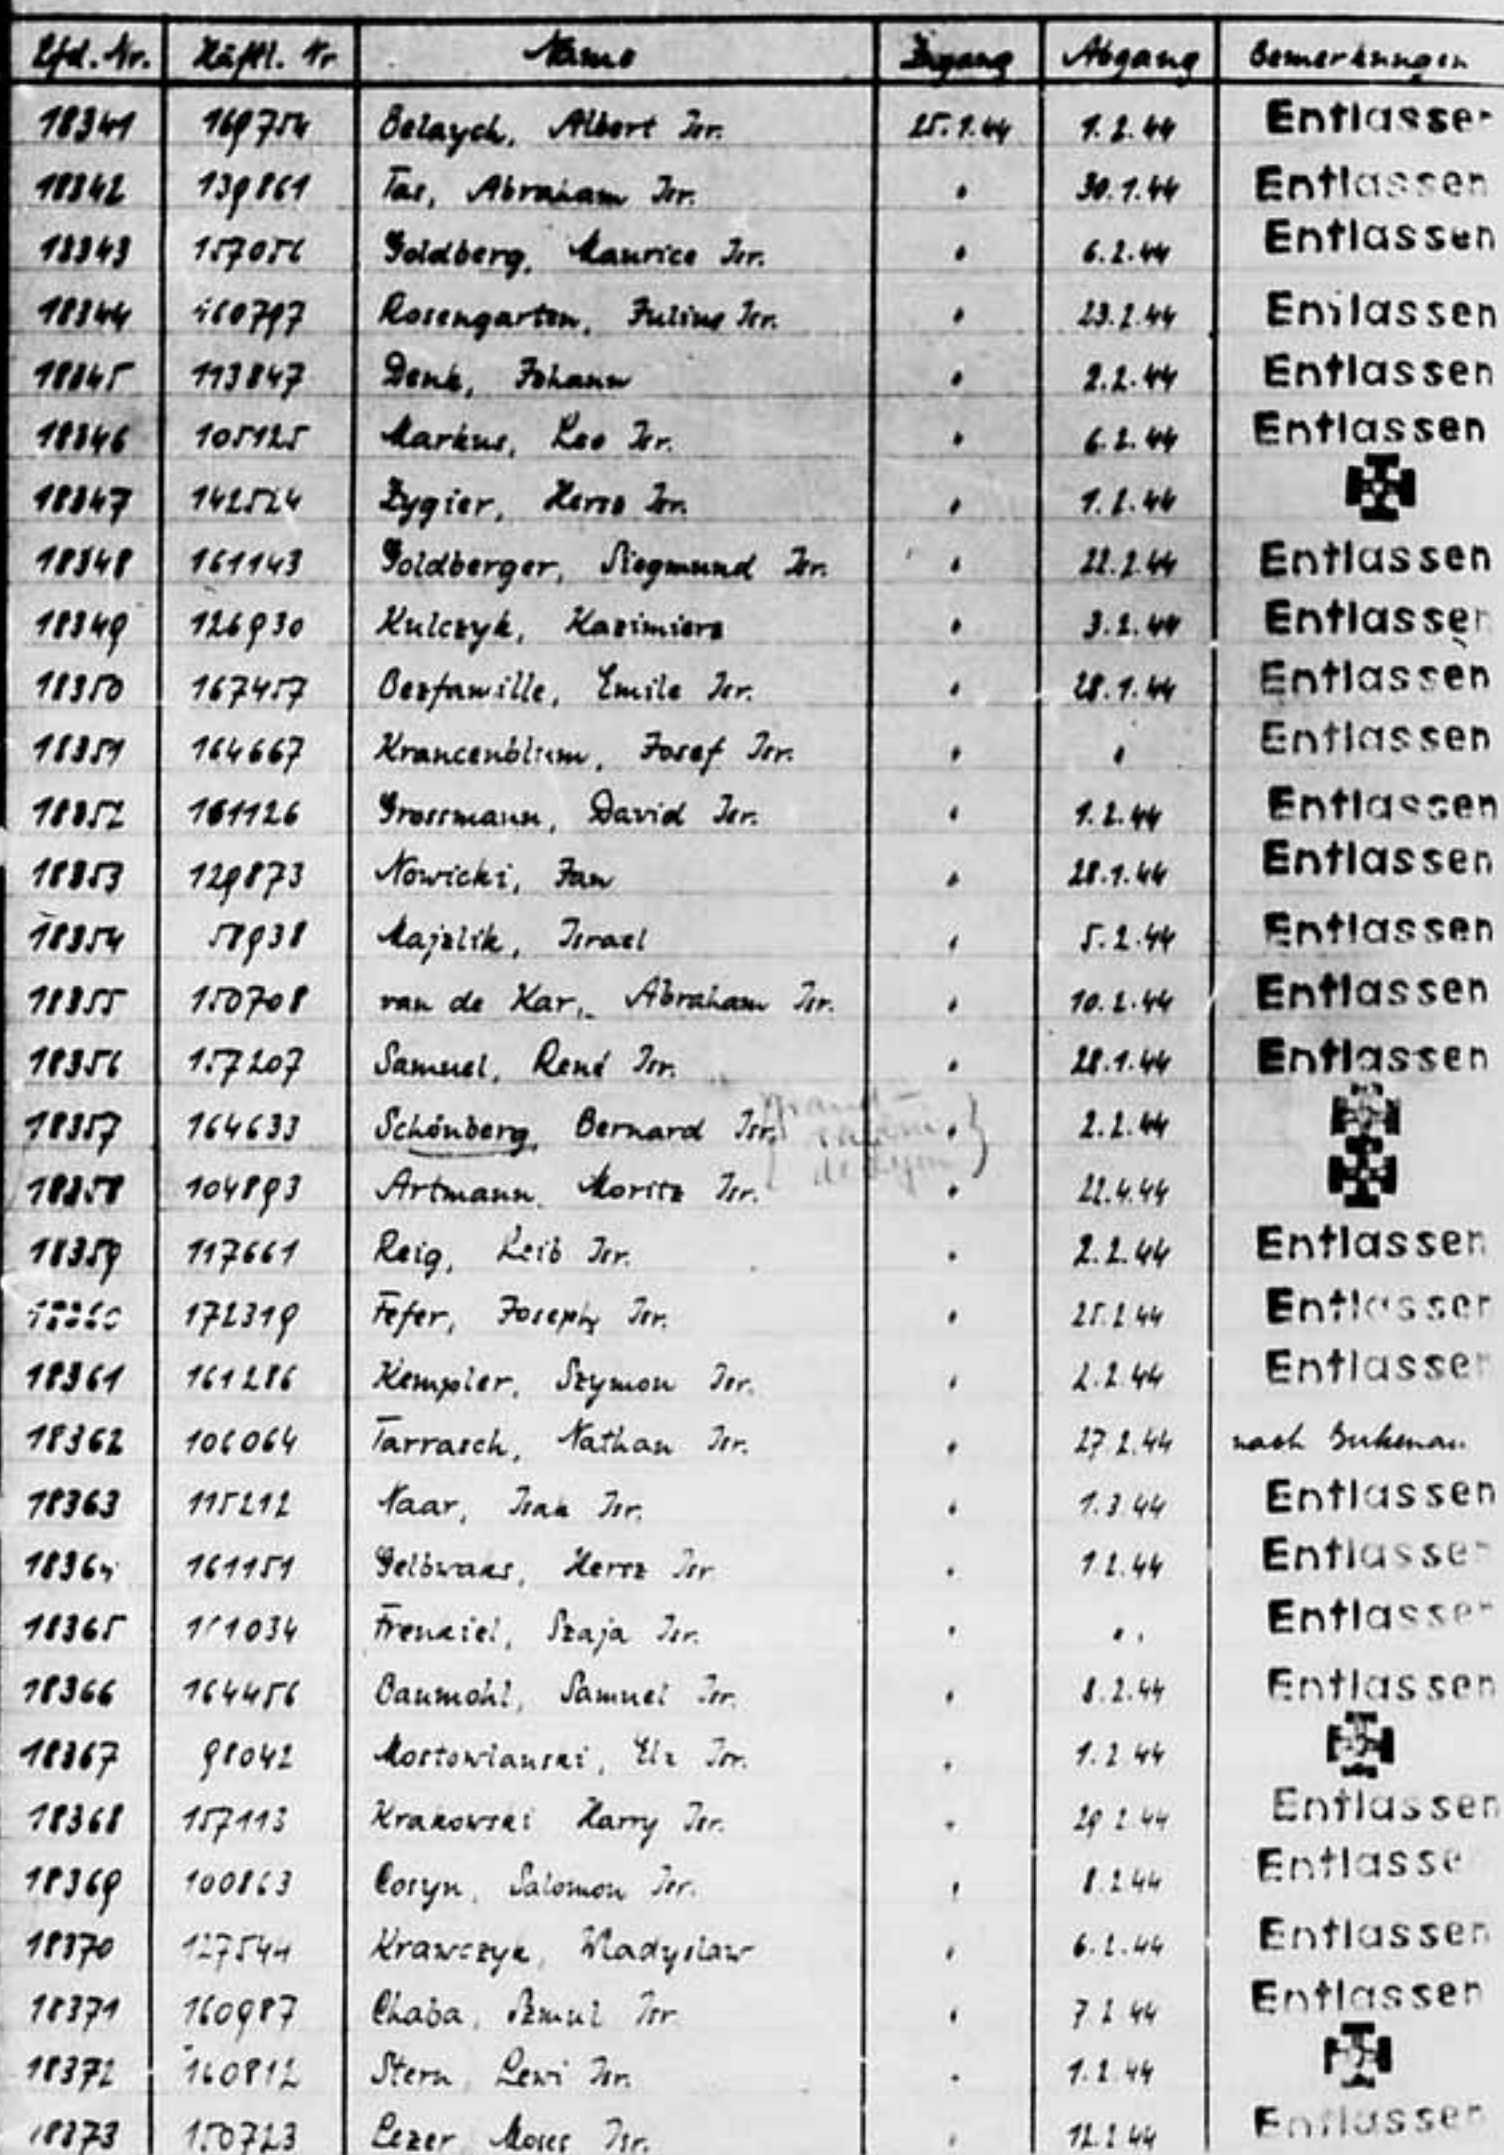 Lfd. Nr. Häftl. Nr. Name Zugang Abgang Bemerkungen
18341 169754 Belaych, Albert Isr. 25.1.44 1.2.44 Entlassen
18342 139861 Tas, Abraham Isr. " 30.1.44 Entlassen
18343 157056 Goldberg, Maurice Isr. " 6.2.44 Entlassen
18344 160797 Rosengarten, Julius Isr. " 23.2.44 Entlassen
18345 113847 Denk, Johann " 2.2.44 Entlassen
18346 105125 Markus, Leo Isr. " 6.2.44 Entlassen
18347 142524 Zygier, Hersz Isr. " 1.2.44
18348 161143 Goldberger, Siegmund Isr. " 22.2.44 Entlassen
18349 126930 Kulczyk, Kazimierz " 3.2.44 Entlassen
18350 167457 Bezfamille, Emile Isr. " 28.1.44 Entlassen
18351 164667 Krancenblum, Josef Isr. " " Entlassen
18352 161126 Grossmann, David Isr. " 1.2.44 Entlassen
18353 129873 Nowicki, Jan " 28.1.44 Entlassen
18354 58938 Majzlik, Israel " 5.2.44 Entlassen
18355 150708 van de Kar, Abraham Isr. " 10.2.44 Entlassen
18356 157207 Samuel, René Isr. " 28.1.44 Entlassen
18357 164633 Schönberg, Bernard Isr. " 2.2.44
18358 104893 Artmann, Moritz Isr. " 22.4.44
18359 117661 Reig, Leib Isr. " 2.2.44 Entlassen
18360 172319 Fefer, Joseph Isr. " 25.2.44 Entlassen
18361 161286 Kempler, Szymon Isr. " 2.2.44 Entlassen
18362 106064 Tarrasch, Nathan Isr. " 27.2.44 nach Birkenau
18363 115212 Naar, Isak Isr. " 1.3.44 Entlassen
18364 161151 Gelbwaks, Hersz Isr. " 1.2.44 Entlassen
18365 161034 Frenkiel, Szaja Isr. " " Entlassen
18366 164456 Baumohl, Samuel Isr. " 8.2.44 Entlassen
18367 98042 Mostowlanski, Isr. " 1.2.44
18368 157113 Krakowski Harry Isr. " 29.2.44 Entlassen
18369 100863 Cosyn, Salomon Isr. " 8.2.44 Entlassen
18370 127544 Krawczyk, Wladyslaw " 6.2.44 Entlassen
18371 160987 Chaba, Szmul Isr. " 7.2.44 Entlassen
18372 160812 Stern, Lewi Isr. " 1.2.44
18373 150723 Lezer, Moses Isr. " 12.2.44 Entlassen